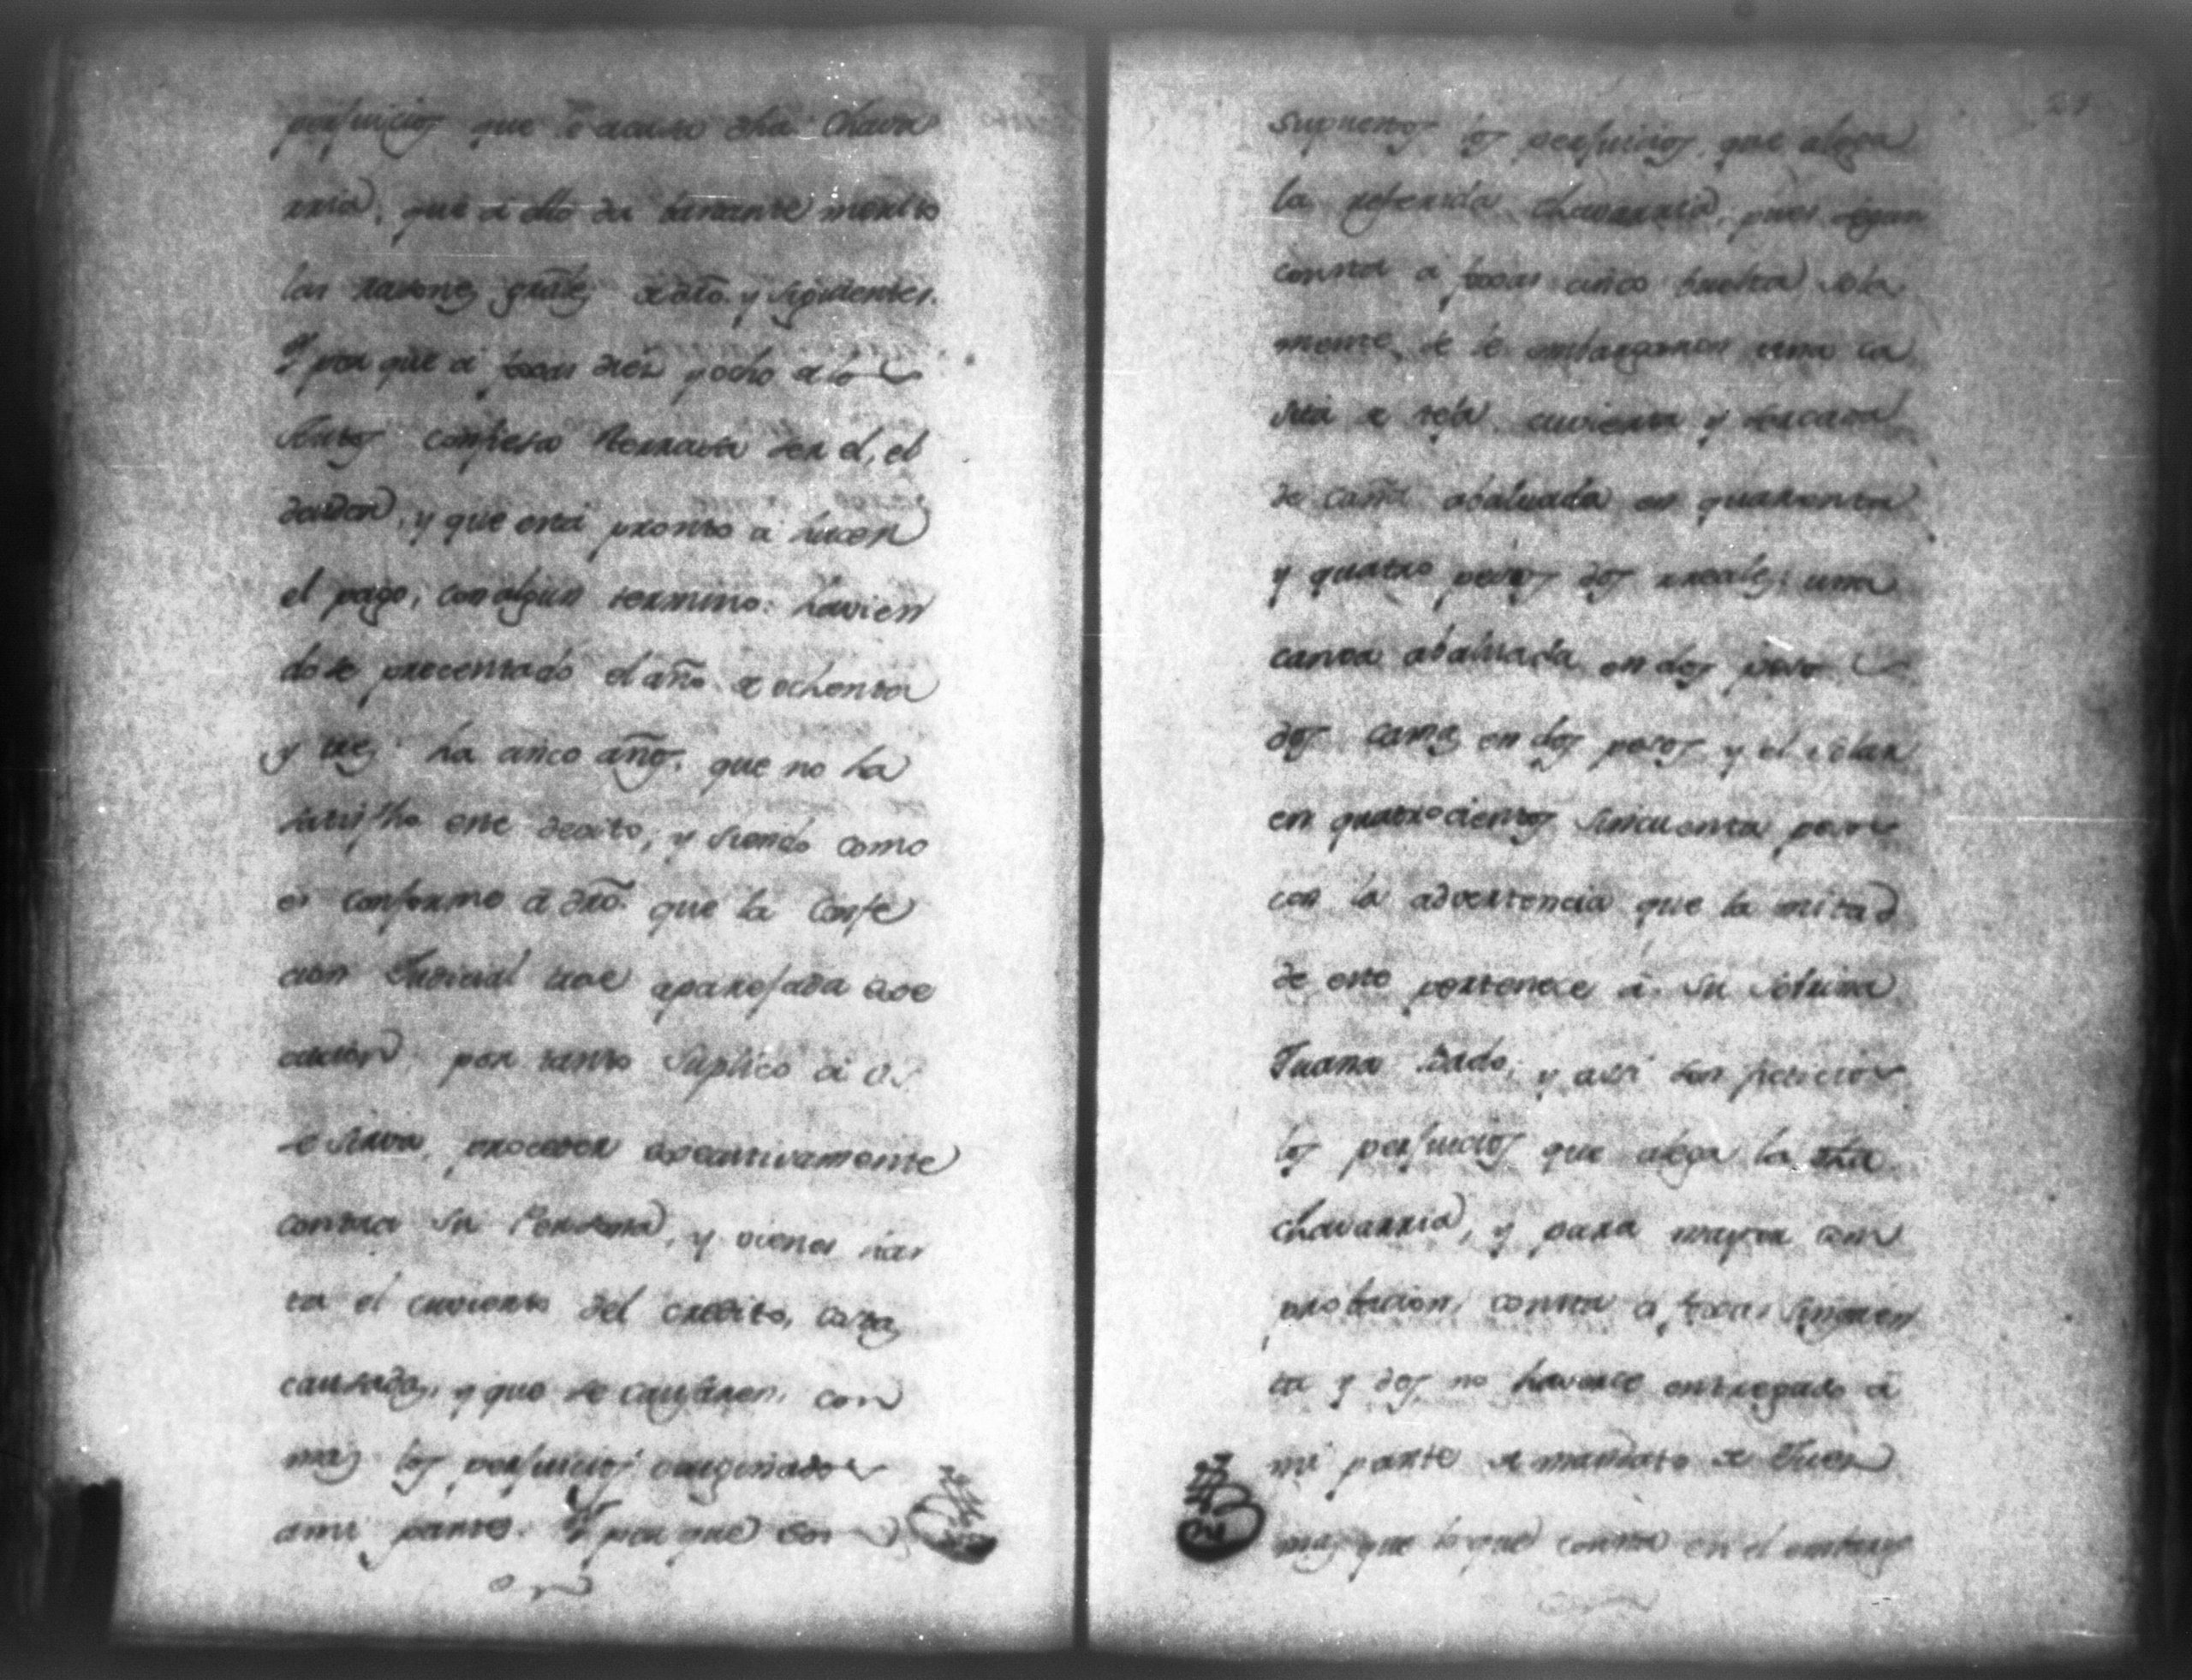 perjuicios que le acusa dha Chava
rria, que a ello da bastante merito
las rasones grãles de dro. y siguientes.
Y por que a foxas diez y ocho de los
Autos confiesa Terrasa ser el, el
deudor, y que está pronto a hacer
el pago, con algun termino: havien
dose precentado el año de ochenta
y tres ha cinco años, que no ha
satisfho este devito, y siendo como
es conforme a dro. que la Confe
cion Judicial trae aparejada exe
cucion, por tanto Suplico a Vd.
se sirva proceder executivamente
contra su Persona, y vienes has
ta el cuvierto del credito, costas
causadas, y que se causaren, con
mas los perjuicios originados
a mi parte. Y por que son
21
Supuestos los perjuicios que alega
la referida Chavarria, pues segun
consta a foxas cinco buelta sola
mente se le embargaron una ca
sita de teja cuvierta y sercada
de caña abaluada en quarenta
y quatro pesos dos rreales: una
canoa abaluada en dos pesos
dos camas en dos pesos y el solar
en quatrocientos sincuenta pesos
con la advertencia que la mitad
de este pertenece a su sobrina
Juana Dado; y assi son
los perjuicios que alega la dha
Chavarria, y para mayor com
probacion, consta a foxas sinquen
ta y dos no haverse entregado a
mi parte de mandato de Juez
mas que lo que consta en el embargo